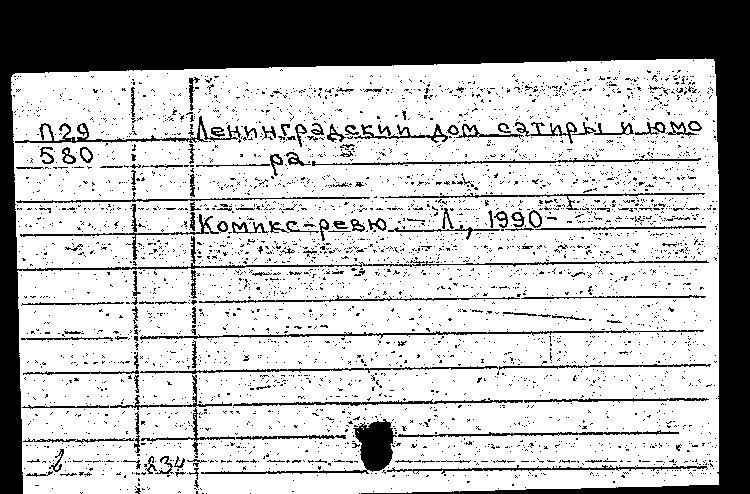 П29 Ленинградский дом сатиры и юмо
580 ра.
Комикс-ревю. - Л., 1990-
2 834